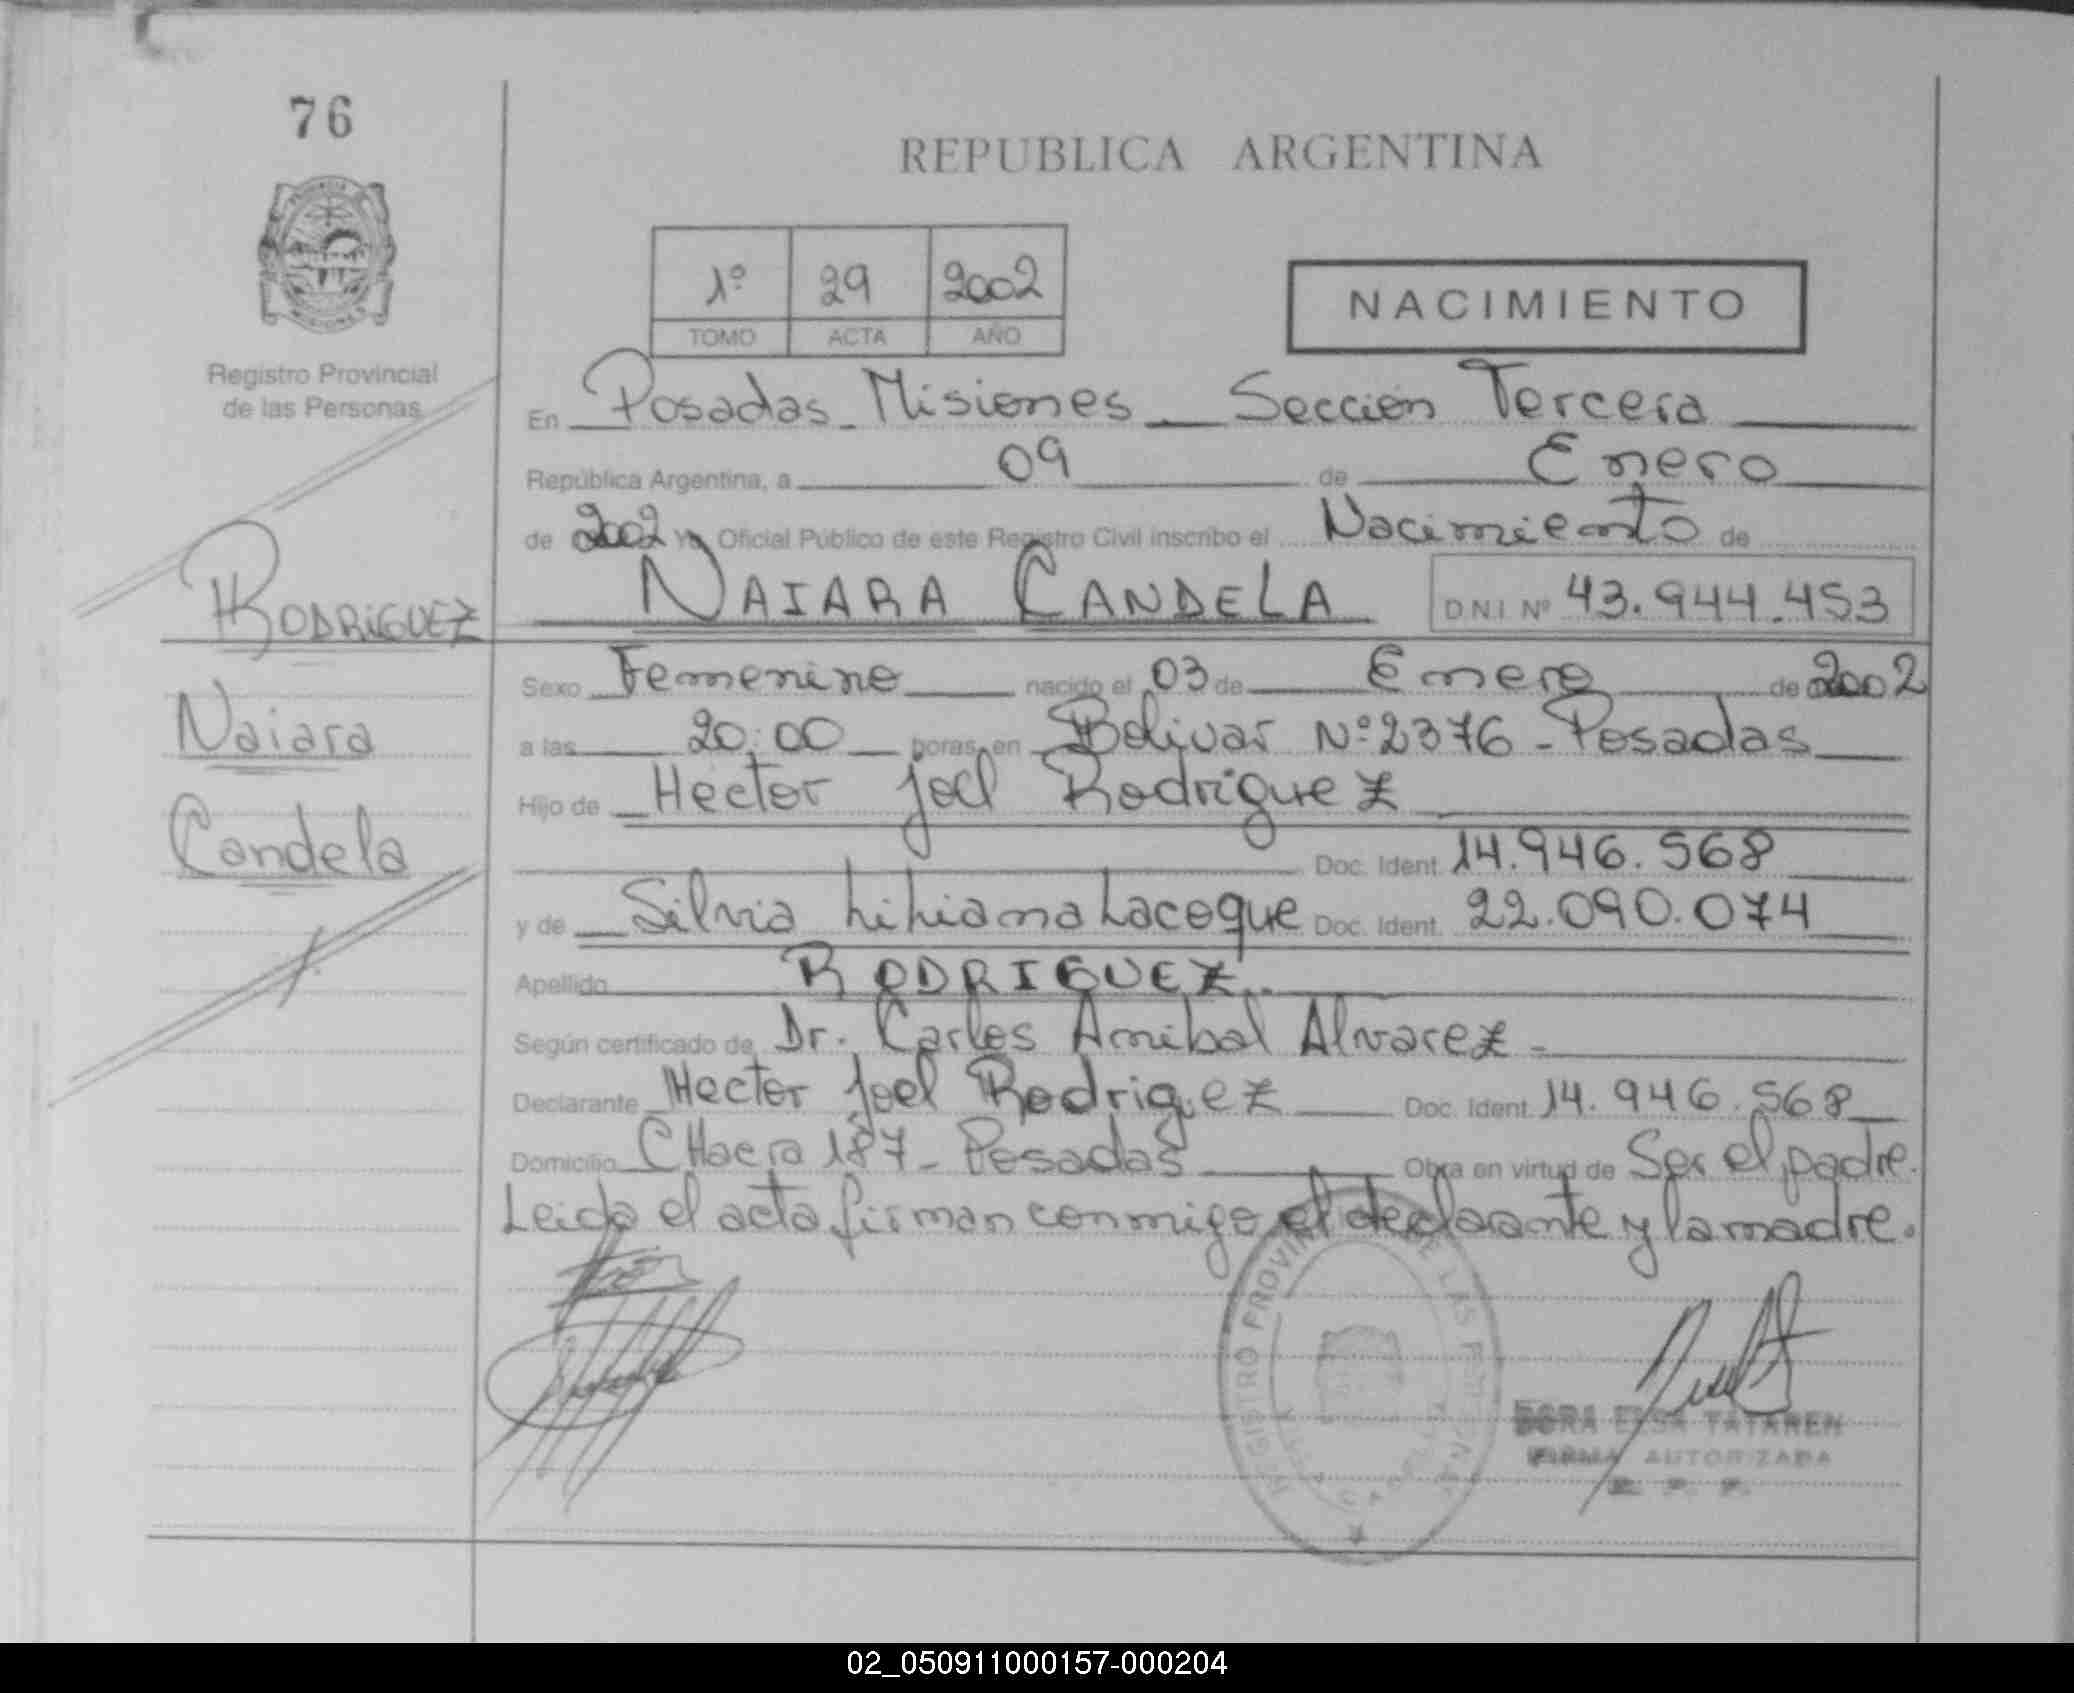 76
REPUBLICA ARGENTINA
1º 29 2002
TOMO ACTA AÑO
NACIMIENTO
Registro Provincial
de las Personas
En Posadas - Misiones - Sección Tercera
República Argentina, a 09 de Enero
de 2002 Yo Oficial Público de este Registro Civil inscribo el Nacimiento de
NAIARA CANDELA D.N.I. Nº 43.944.453
RODRIGUEZ
Naiara
Candela
Sexo Femenino nacido el 03 de Enero de 2002
a las 20:00 horas, en Bolivar Nº 2376 - Posadas
Hijo de Hector Joel Rodriguez
Doc. Ident. 14.946.568
y de Silvia Liliana Lacoque Doc. Ident. 22.090.074
Apellido RODRIGUEZ
Según certificado de Dr. Carlos Anibal Alvarez -
Declarante Hector Joel Rodriguez Doc. Ident. 14.946.568
Domicilio CHacra 187 - Posadas Obra en virtud de Ser el padre.
Leida el acta firman conmigo el declarante y la madre.
REGISTRO PROVINCIAL DE LAS PERSONAS
DORA ELSA TATAREN
FIRMA AUTORIZADA
R. P. P.
02_050911000157-000204